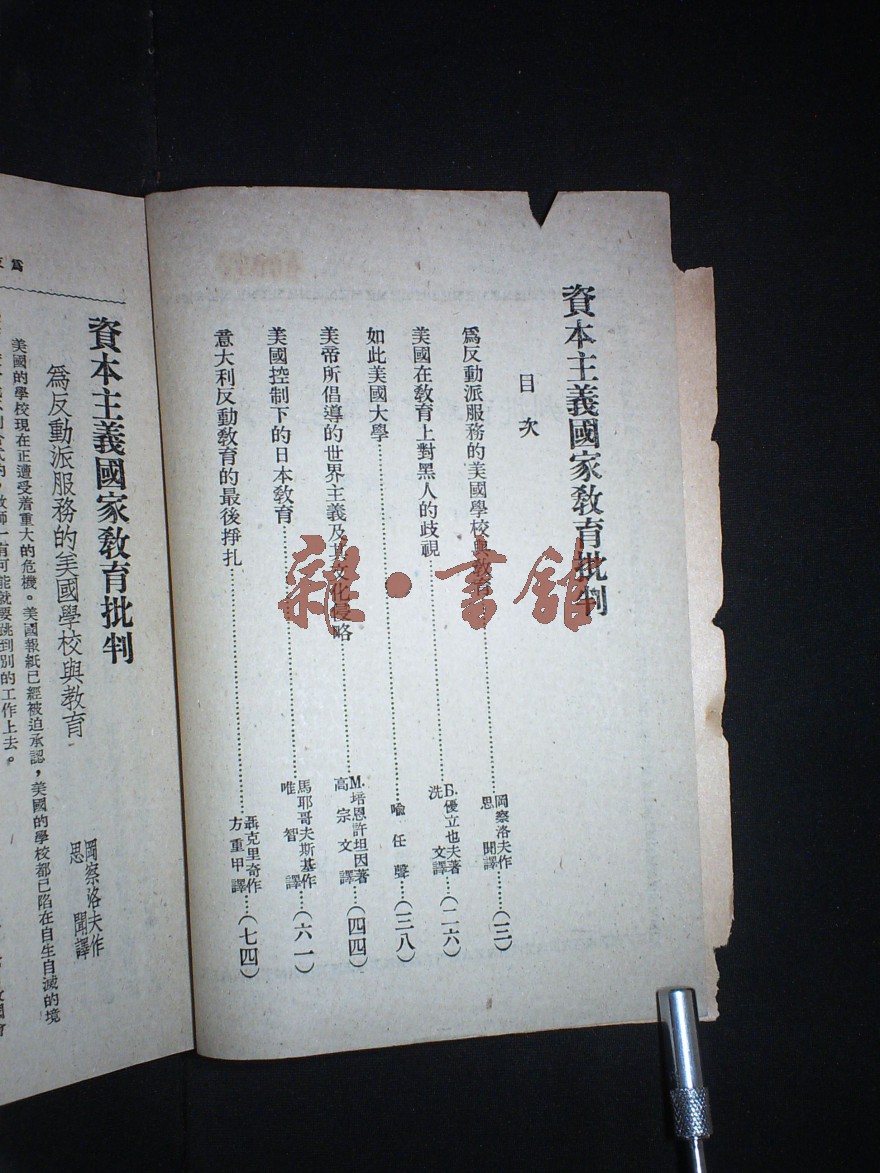 資本主義國家教育批判
目次
爲反動派服務的美國學校與教育……岡察洛夫作 思聞譯……(三)
美國在教育上對黑人的歧視……Б.優立也夫著 洗文譯……(二六)
如此美國大學……喻任聲……(三八)
美帝所倡導的世界主義及其文化侵略……M.培恩許坦因著 高宗文譯……(四四)
美國控制下的日本教育……馬耶哥夫斯基作 唯智譯……(六一)
意大利反動教育的最後掙扎……聶克里奇作 方重甲譯……(七四)
雜·書館
爲
資本主義國家教育批判
爲反動派服務的美國學校與教育
岡察洛夫作
思聞譯
美國的學校現在正遭受着重大的危機。美國報紙已經被迫承認,美國的學校都已陷在自生自滅的境
教師一有可能就要跳到別的工作上去。